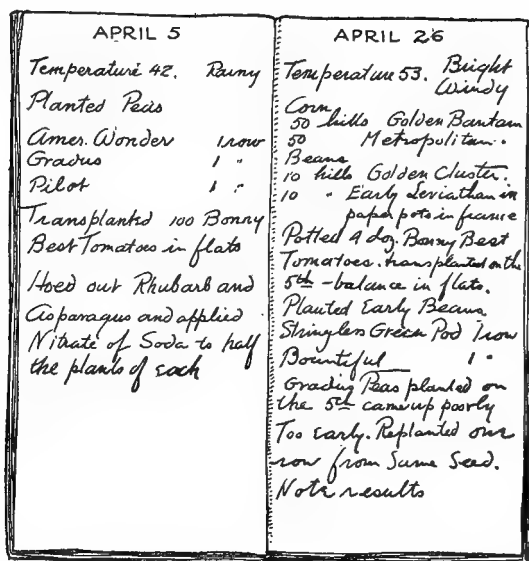 APRIL 5
Temperature 42. Rainy
Planted Peas
Amer. Wonder 1 row
Gradus 1 "
Pilot 1 "
Transplanted 100 Bonny
Best Tomatoes in flats
Hoed out Rhubarb and
Asparagus and applied
Nitrate of Soda to half
the plants of each
APRIL 26
Temperature 53. Bright
Windy
Corn
50 hills Golden Bantam
50 Metropolitan "
Beans
10 hills Golden Cluster.
10 " Early Leviathan in
paper pots in frame
Potted 4 doz. Bonny Best
Tomatoes. transplanted on the
5th - balance in flats.
Planted Early Beans
Stringless Green Pod 1 row
Bountiful 1 "
Gradus Peas planted on
the 5th came up poorly
Too early. Replanted one
row from Same Seed.
Note results